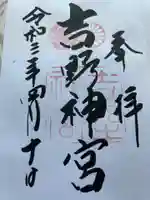 奉拝
吉野神宮
令和三年四月十日